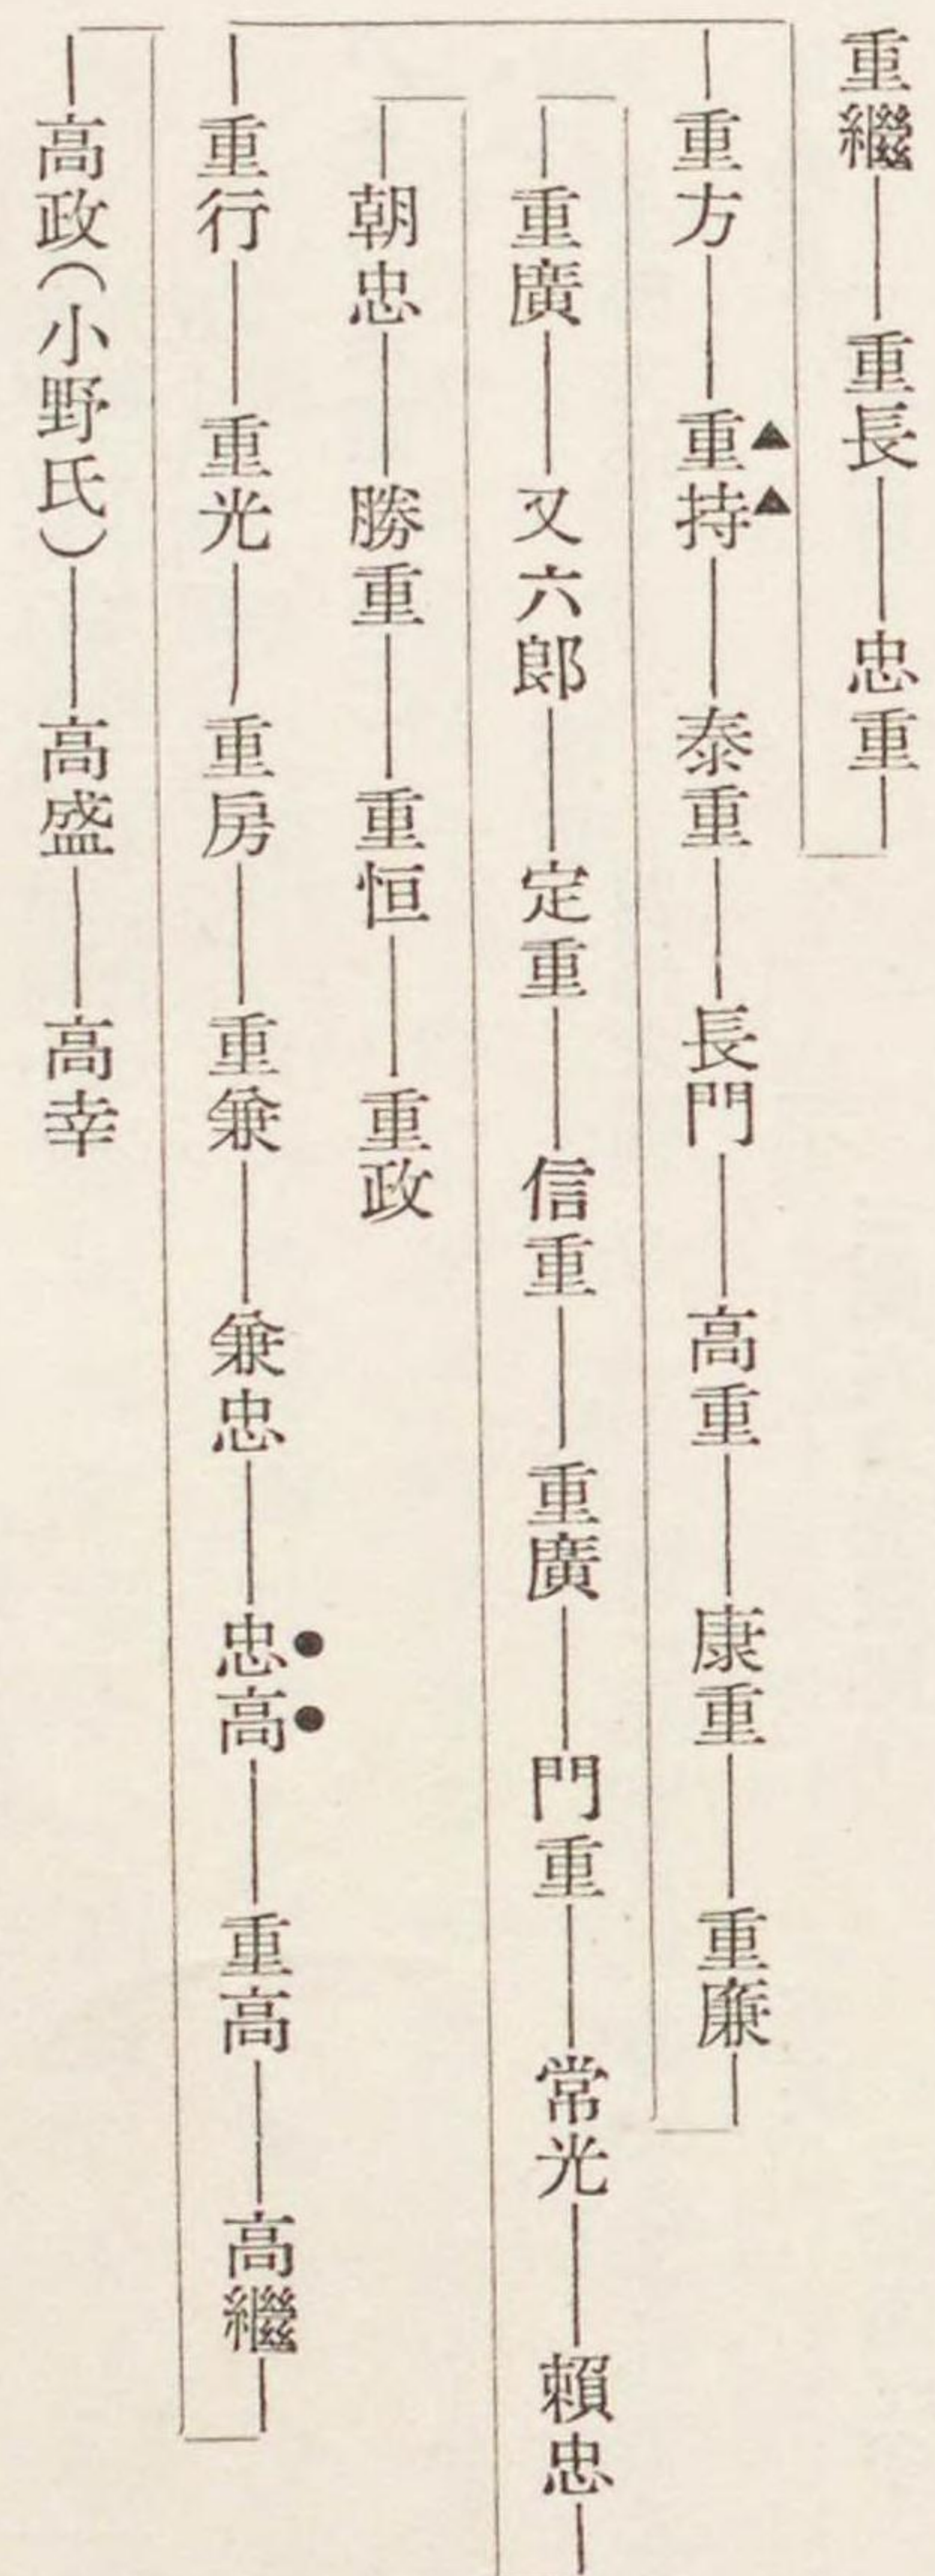 重繼―重長―忠重
重方―重持―泰重―長門―高重―康重―重廉
重廣―又六郎―定重―信重―重廣―門重―常光―賴忠
朝忠―勝重―重恒―重政
重行―重光―重房―重兼―兼忠―忠高―重高―高繼
高政(小野氏)―高盛―高幸